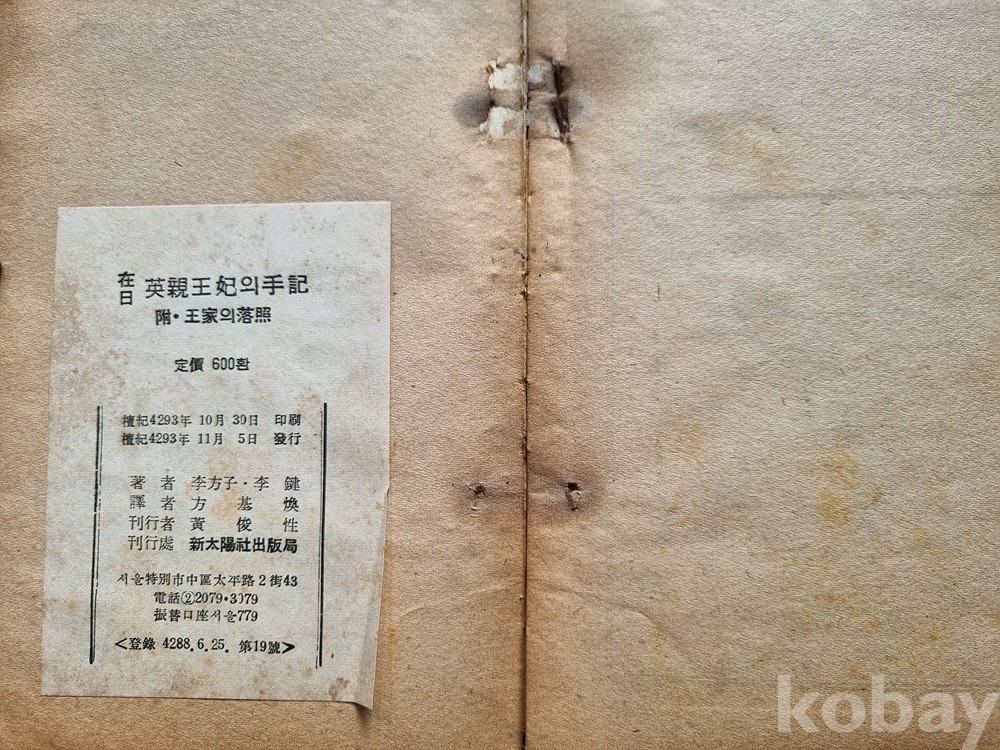 在日 英親王妃의手記
附·王家의落照
定價 600환
檀紀4293年 10月 30日 印刷
檀紀4293年 11月 5日 發行
著者 李方子·李鍵
譯者 方基煥
刊行者 黃俊性
刊行處 新太陽社出版局
서울特別市中區太平路2街43
電話②2079·3079
振替口座서울779
<登錄 4288.6.25. 第19號>
kobay